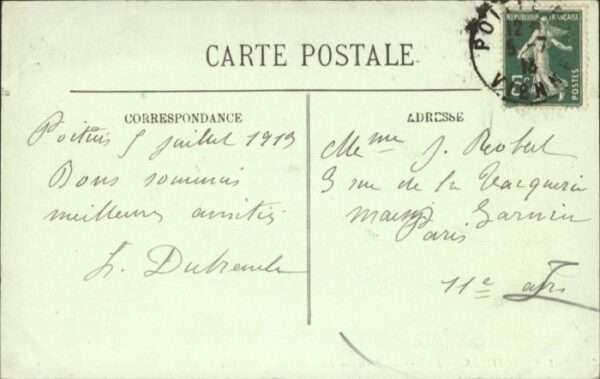 CARTE POSTALE
RÉPUBLIQUE FRANÇAISE
5c
POSTES
VIENNE
CORRESPONDANCE
Poitiers 5 juillet 1913
Bons souvenirs
meilleures amitiés
ADRESSE
Mme J. Robert
3 rue de la Vacquerie
Paris
11e